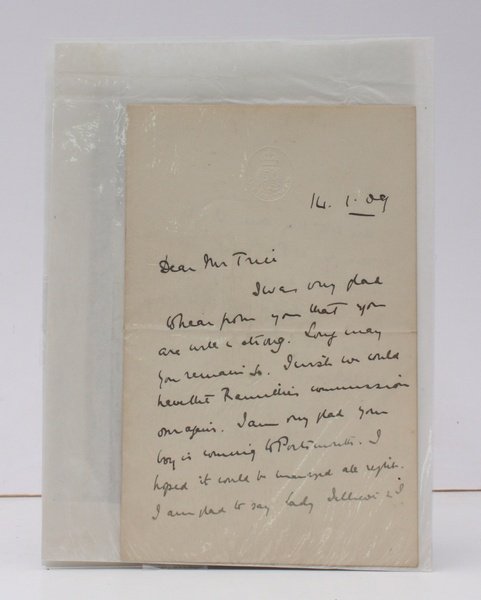 14. 1. 09
Dear Mr
I was very glad
to hear from you that you
are well & strong. Long may
you remain so. I wish we could
have the Ramillies commission
over again. I am very glad your
boy is coming to Portsmouth. I
hoped it could be managed all right.
I am glad to say Lady